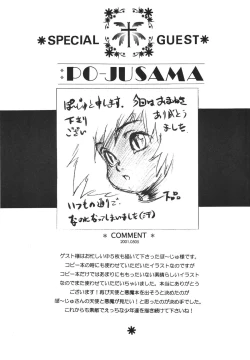 *SPECIAL GUEST*
PO-JUSAMA
ぽーじゅと申します。今回はおまねき
下さり ありがとう
ござい ました
いつもの通り
* COMMENT *
ゲスト様はお忙しい中5枚も描いて下さったぽーじゅ様です。
コピー本の時にも使わせていただいたイラストなのですが
コピー本だけではあまりにももったいない素晴らしいイラスト
なのでまた使わせていただいちゃいました。本当にありがとう
ございます！再び天使と悪魔本を出そうと決めたのが
ぽーじゅさんの天使と悪魔が見たい！と思ったのが決め手でした。
これからも素敵でえっちな少年達を描き続けて下さいね！